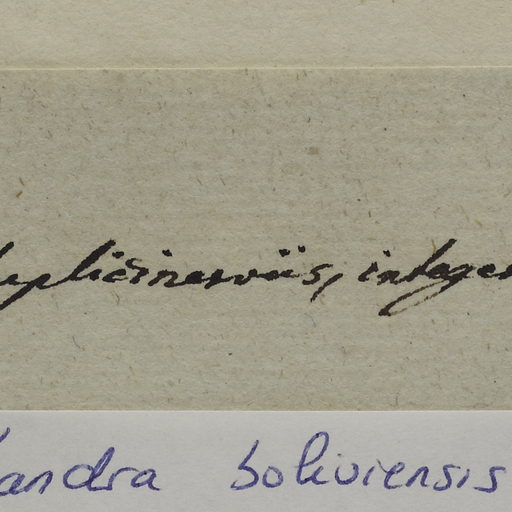 uplicinerviis, integer
andra boliviensis